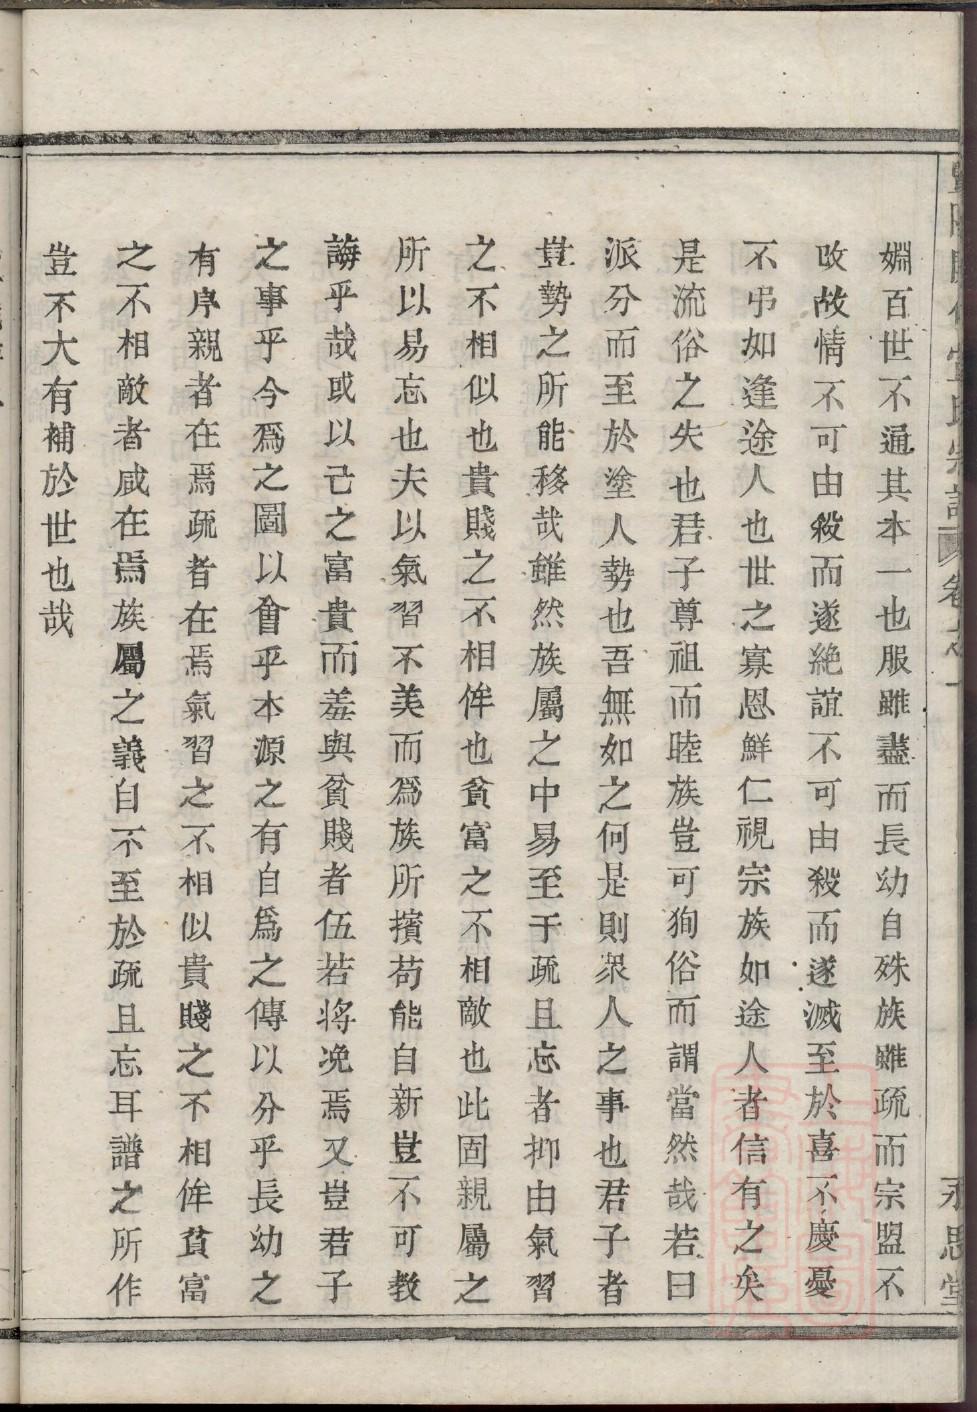 婣百世不通其本一也服雖盡而長幼自殊族雖疏而宗盟不
改故情不可由殺而遂絶誼不可由殺而遂滅至於喜不慶憂
不弔如逢途人也世之寡恩鮮仁視宗族如途人者信有之矣
是流俗之失也君子尊祖而睦族豈可狥俗而謂當然哉若曰
派分而至於塗人勢也吾無如之何是則衆人之事也君子者
豈勢之所能移哉雖然族屬之中易至于疏且忘者抑由氣習
之不相似也貴賤之不相侔也貧富之不相敵也此固親屬之
所以易忘也夫以氣習不美而爲族所擯苟能自新豈不可教
誨乎哉或以己之富貴而羞與貧賤者伍若將浼焉又豈君子
之事乎今爲之圖以會乎本源之有自爲之傳以分乎長幼之
有序親者在焉疏者在焉氣習之不相似貴賤之不相侔貧富
之不相敵者咸在焉族屬之義自不至於疏且忘耳譜之所作
豈不大有補於世也哉
卷之一
永思堂